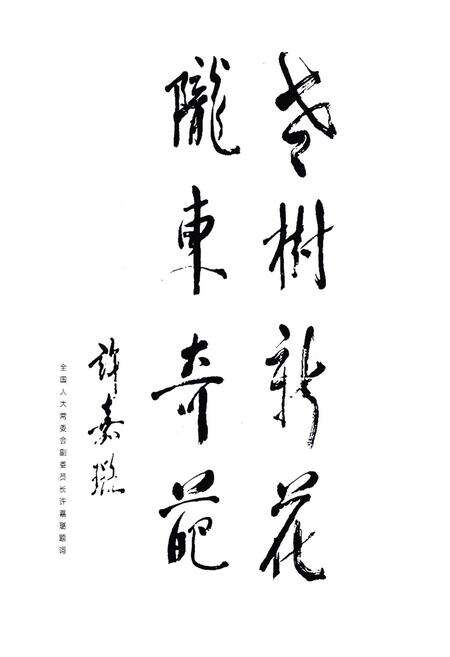 老樹新花
隴東奇葩
許嘉璐
全国人大常委会副委员长许嘉璐题词